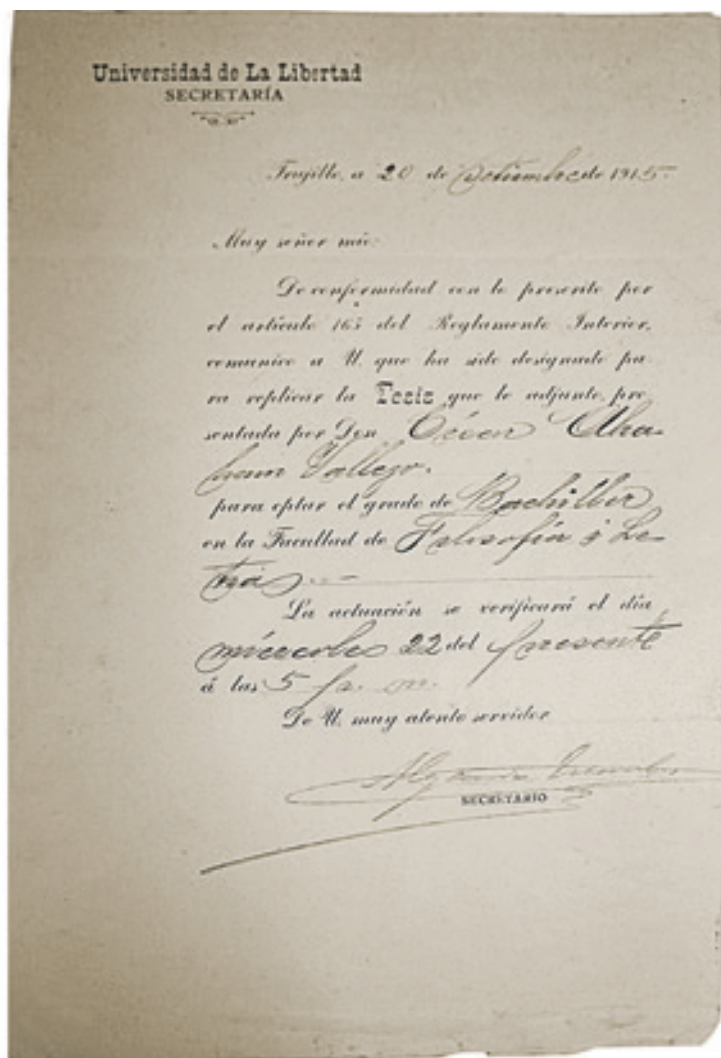 Universidad de La Libertad
SECRETARÍA
Trujillo, a 20 de Setiembre de 1915.
Muy señor mío:
De conformidad con lo prescrito por
el artículo 163 del Reglamento Interior,
comunico a U. que ha sido designado pa-
ra replicar la Tesis que le adjunto, pre-
sentada por Don César Abra-
ham Vallejo.
para optar el grado de Bachiller
en la Facultad de Filosofía i Le-
tras.
La actuación se verificará el día
miércoles 22 del presente
á las 5 p. m.
De U. muy atento servidor
SECRETARIO